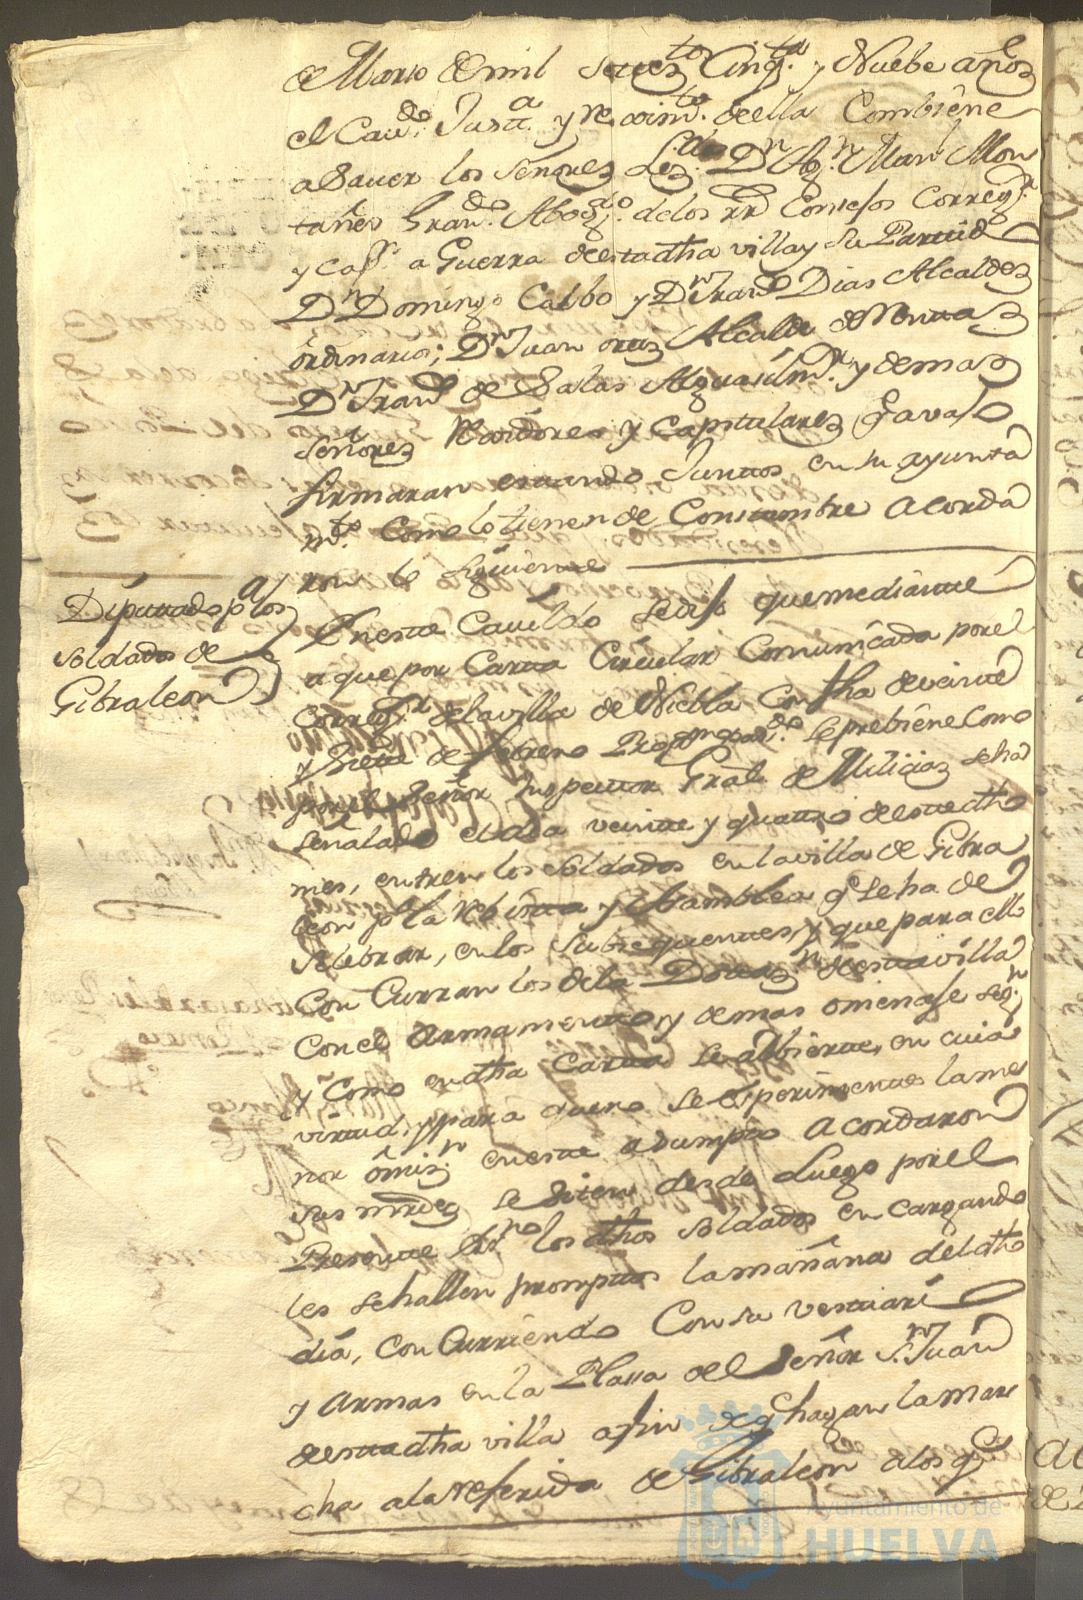 de Marzo de mil Setez.tos Cinq.ta y Nuebe años
el Cav.do Just.a y Reximt.o de ella Combiene
a Saver los Señorez Lz.do Dn Ag.n Man.l Mon
tañes Gran.do Abog.do de los RR Consejos Correg.r
y Cap.n a Guerra de esta dha villa y su Partido
Dn Domingo Calbo y Dn Fran.co Dias Alcaldez
ôrdinarios; Dn Juan ortiz Alcalde de
Dn Fran.co de Salas Alguasil m.r y demas
señorez Rexidores y Capitularez q avaxo
firmaran estando Juntos en su ayunta
mt.o Como lo tienen de Constumbre acorda
ron lo siguiente
Diputado p.a los
soldados de
Gibraleon
En este Cavildo se dixo que mediante
a que por Carta Circular Comunicada por el
Correg.r de la villa de Niebla Con fha de veinte
y siete de febrero se prebiene Como
por el Señor Inspector Gral de Miliciaz se ha
señalado el dia veinte y quatro de este dho
mes, entren los soldados en la villa de Gibra
leon p.a la Rebista y Asamblea q se ha de
selebrar, en los subsequentes, y que para ello
Con Curran los de la de esta villa
Con el Armamento, y demas omenaje seg.n
y Como en dha Carta se adbierte, en cuia
virtud, y para que no se experimente la me
nor ômis.n en este asumpto acordaron
sus mrdez se siten desde Luego por el
Presente es.no los dhos soldados en cargando
les se hallen promptos la mañana del dho
dia, con Curriendo Con su vestuario
y armas en la Plasa del Señor S.n Juan
de esta dha villa a fin de q hagan la mar
cha a la referida de Gibraleon a los q.e
Ayuntamiento de
HUELVA